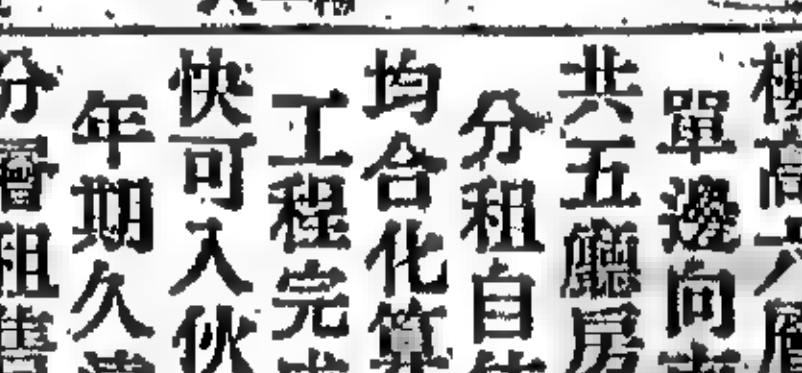 樓高六層
單邊向南
共五廳房
分租自
均合化算
工程完
快可入伙
年期久
分層租售